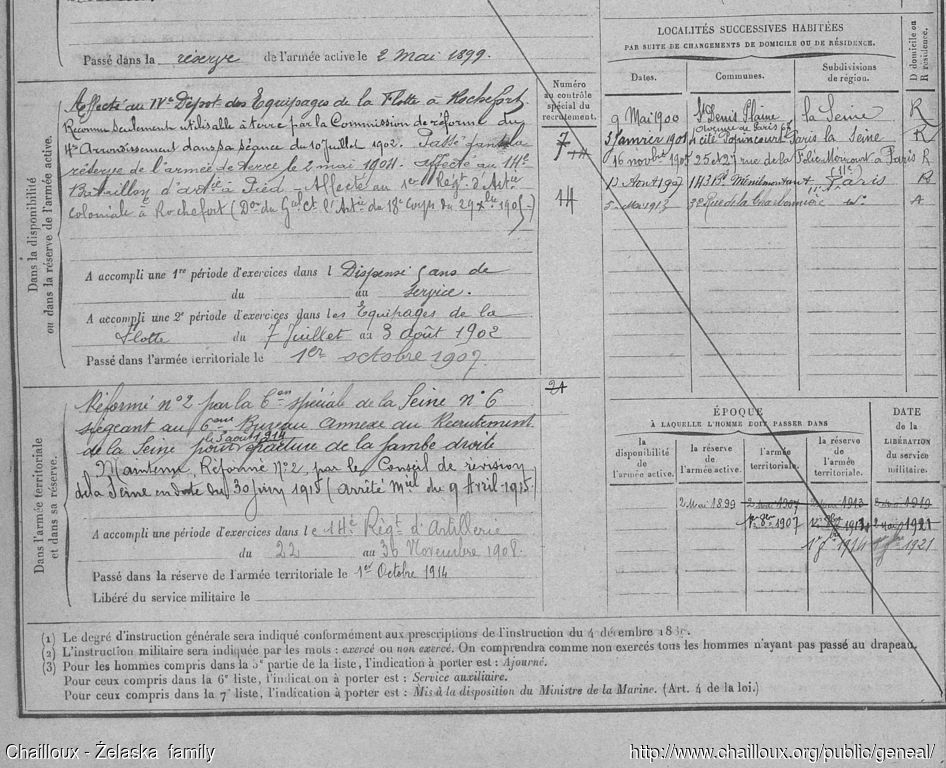 Passé dans la réserve de l'armée active le 2 Mai 1899.
Dans la disponibilité
ou dans la réserve de l'armée active.
Affecté au IVe Dépôt des Equipages de la Flotte à Rochefort
Reconnu seulement utilisable à terre par la Commission de réforme du
4e Arrondissement dans sa séance du 10 juillet 1902. Passé dans la
réserve de l'armée de terre le 2 mai 1904. affecté au 14e
Bataillon d'artie à Pied - Affecté au 1er Régt d'Artie
coloniale à Rochefort (Don du Gal Ct l'Artie du 18e Corps du 29 xbre 1905-)
A accompli une 1re période d'exercices dans l Dispensé ans de
du au service.
A accompli une 2e période d'exercices dans les Equipages de la
Flotte du 7 Juillet au 3 août 1902
Passé dans l'armée territoriale le 1er octobre 1907.
Numéro
au contrôle
spécial du
recrutement.
7
44
Dans l'armée territoriale
et dans sa réserve.
Réformé n°2 par la Con spéciale de la Seine n°6
siégeant au 6eme Bureau annexe du Recrutement
de la Seine le 3 août 1914 pour fracture de la jambe droite
Maintenu Réformé N°2 par le Conseil de révision
de la Seine en date du 30 juin 1915 (Arrêté Miel du 9 Avril 1915.
21
A accompli une période d'exercices dans le 14e Régt d'Artillerie
du 22 au 30 Novembre 1908.
Passé dans la réserve de l'armée territoriale le 1er Octobre 1914
Libéré du service militaire le
LOCALITÉS SUCCESSIVES HABITÉES
PAR SUITE DE CHANGEMENTS DE DOMICILE OU DE RÉSIDENCE.
Dates. Communes. Subdivisions de région. D domicile ou R résidence.
9 Mai 1900 St Denis Plaine la Seine R
3 Janvier 1901 4 cité Popincourt Paris la Seine R
16 novbre 1905 25 & 27 rue de la Folie Méricourt à Paris R
12 Aout 1907 143 Bd Ménilmontant (11e) Paris R
5 Mai 1913 32 Rue de la Charbonnière
ÉPOQUE
À LAQUELLE L'HOMME DOIT PASSER DANS
la disponibilité de l'armée active.
la réserve de l'armée active.
l'armée territoriale.
la réserve de l'armée territoriale.
DATE
DE LA
LIBÉRATION
du service
militaire.
2 Mai 1899 2 Mai 1907 2 Mai 1913 2 Mai 1919
1er 8bre 1907 1er 8bre 1914 2 Mai 1921
1er 8bre 1914 1921
(1) Le degré d'instruction générale sera indiqué conformément aux prescriptions de l'instruction du 4 décembre 18
(2) L'instruction militaire sera indiquée par les mots : exercé ou non exercé. On comprendra comme non exercés tous les hommes n'ayant pas passé au drapeau.
(3) Pour les hommes compris dans la 5e partie de la liste, l'indication à porter est : Ajourné.
Pour ceux compris dans la 6e liste, l'indication à porter est : Service auxiliaire.
Pour ceux compris dans la 7e liste, l'indication à porter est : Mis à la disposition du Ministre de la Marine. (Art. 4 de la loi.)
Chailloux - Żelaska family
http://www.chailloux.org/public/geneal/